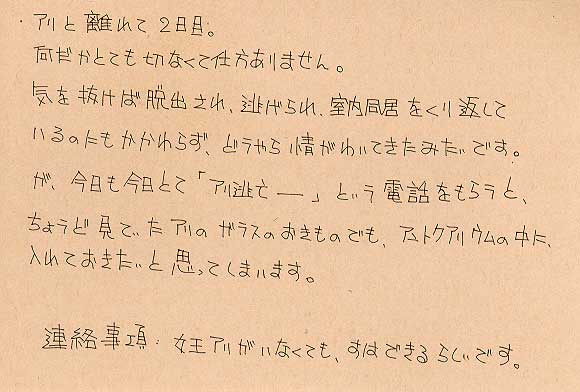 ・アリと離れて2日目。
何だかとても切なくて仕方ありません。
気を抜けば脱出され、逃げられ、室内同居をくり返して
いるのにもかかわらず、どうやら情がわいてきたみたいです。
が、今日も今日とて「アリ逃亡――」という電話をもらうと、
ちょうど見ていたアリのガラスのおきものでも、アントクアリウムの中に、
入れておきたいと思ってしまいます。
連絡事項:女王アリがいなくても、すはできるらしいです。